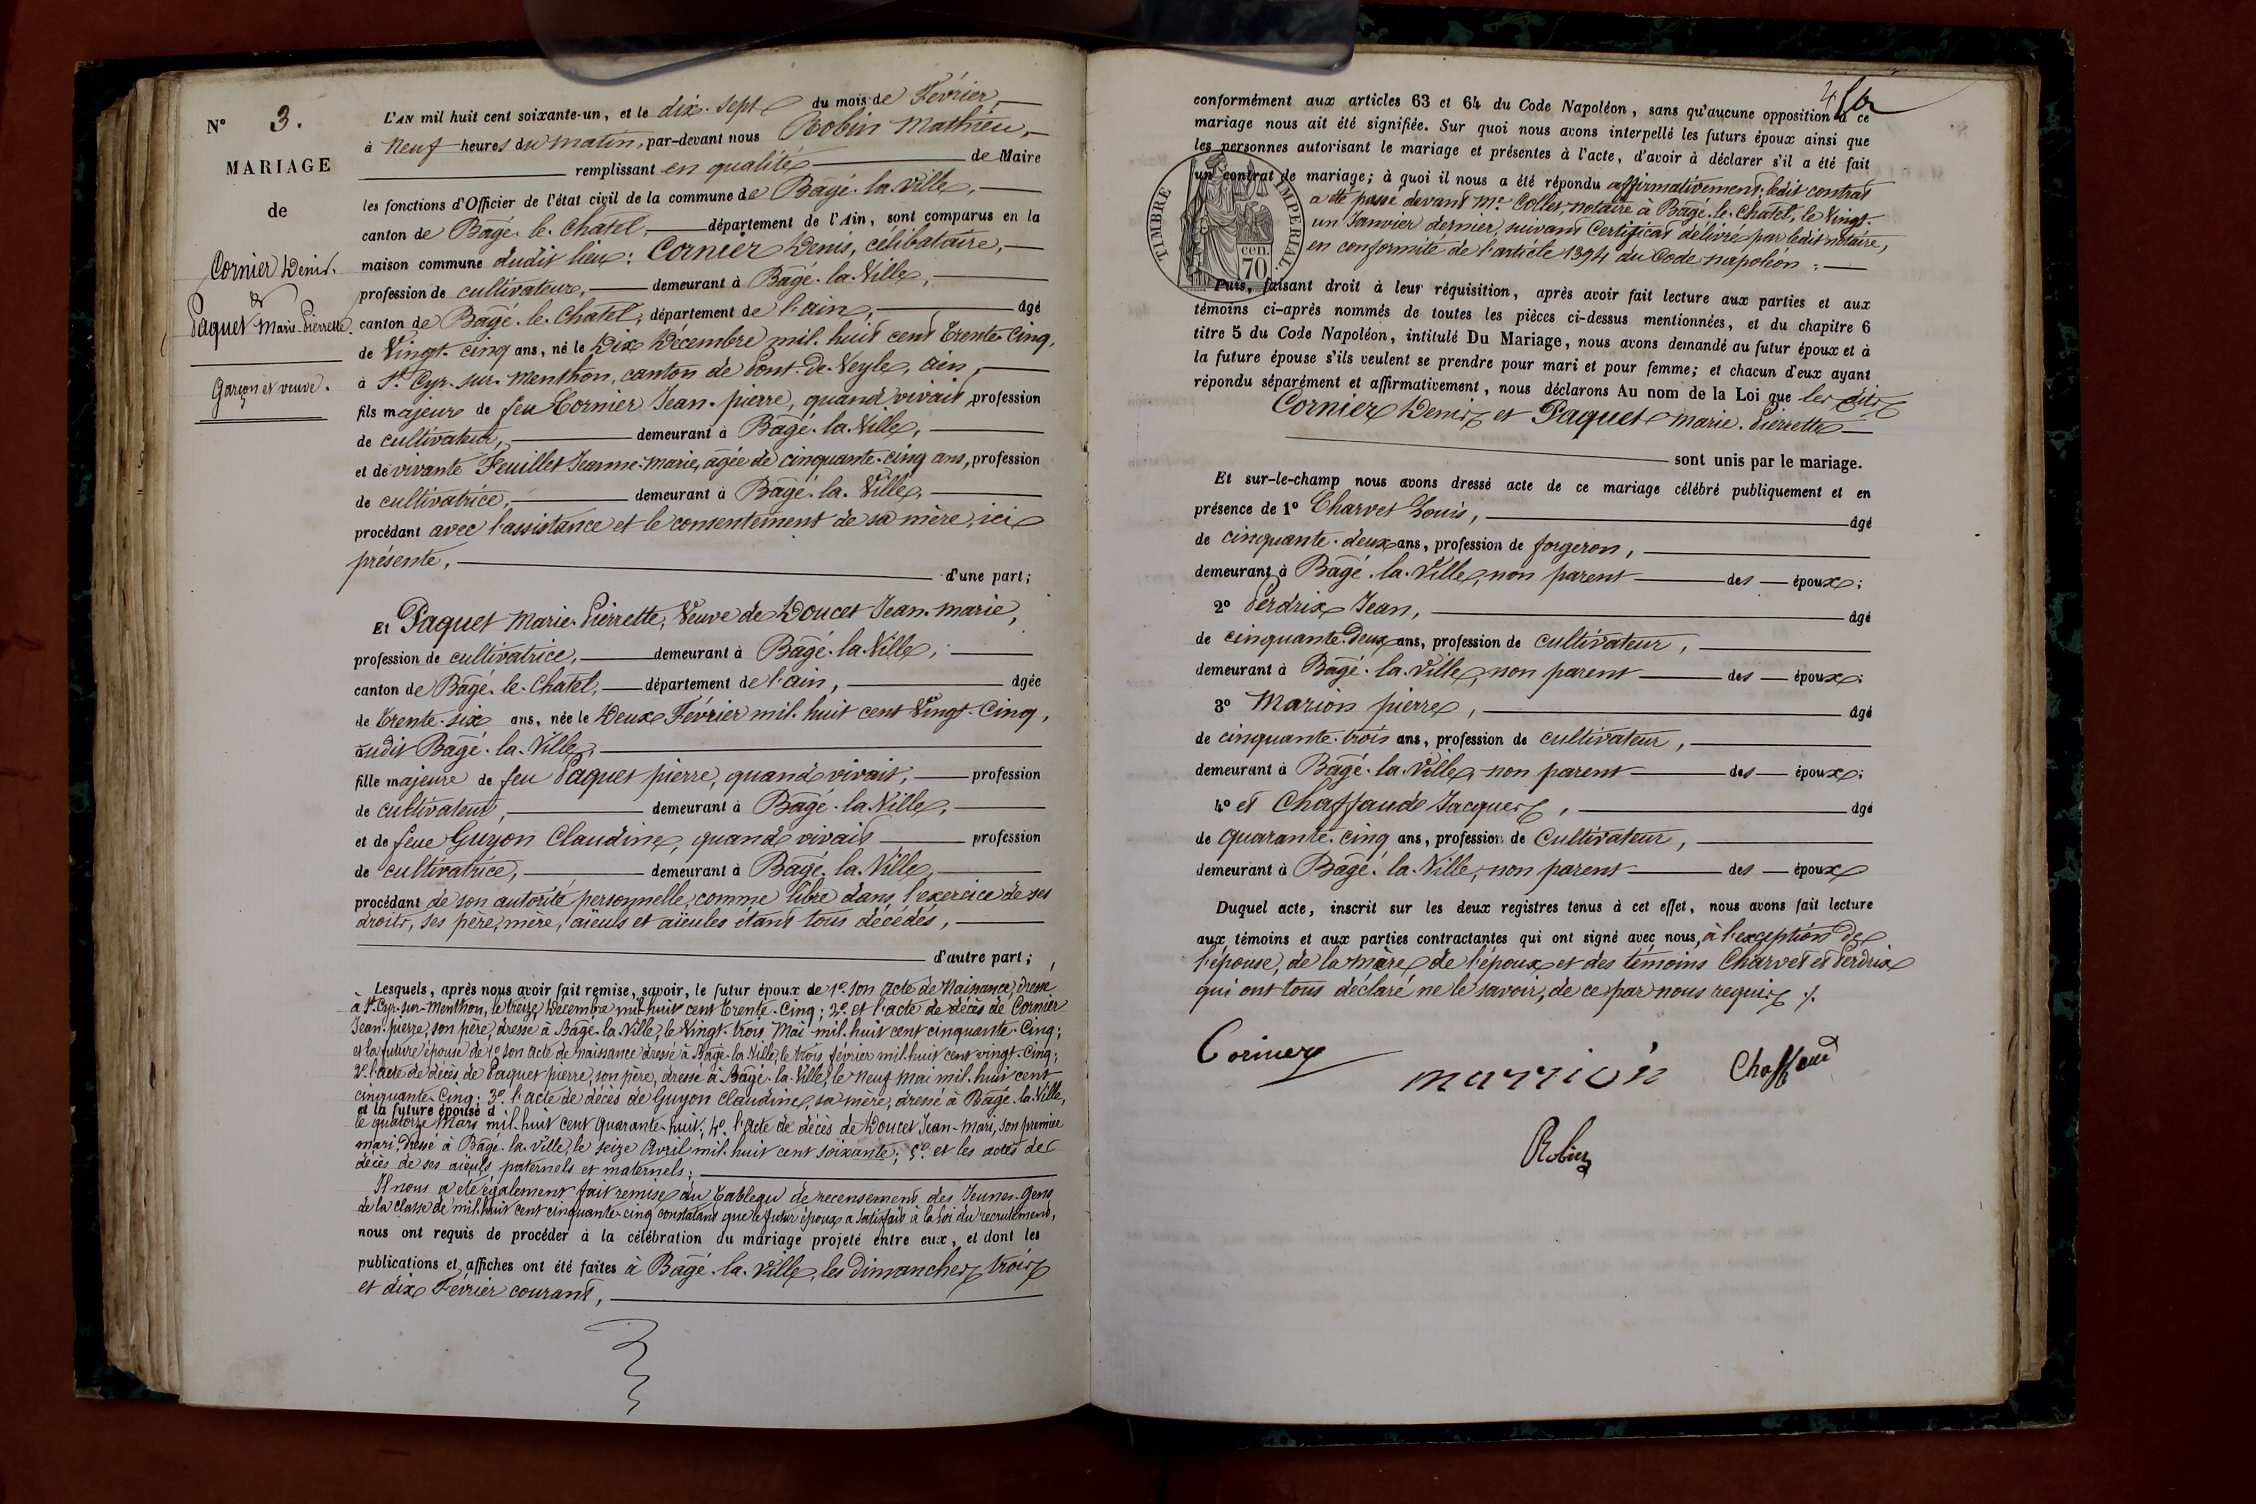 N° 3.
MARIAGE
de
Cornier Denis.
&
Paquet Marie-Pierrette
Garçon et veuve.
L'AN mil huit cent soixante-un, et le dix-sept du mois de Février,
à neuf heures du matin, par-devant nous Robin Mathieu,
remplissant en qualité de Maire
les fonctions d'Officier de l'état civil de la commune de Bâgé-la-Ville,
canton de Bâgé-le-Chatel, département de l'Ain, sont comparus en la
maison commune dudit lieu: Cornier Denis, célibataire,
profession de cultivateur, demeurant à Bâgé-la-Ville,
canton de Bâgé-le-Chatel, département de l'ain, âgé
de Vingt-cinq ans, né le Dix Décembre mil-huit cent Trente-Cinq,
à St Cyr-sur-Menthon, canton de Pont-de-Veyle, ain,
fils majeur de feu Cornier Jean-pierre, quand vivait, profession
de cultivateur, demeurant à Bâgé-la-Ville,
et de vivante Feuillet Jeanne-Marie, âgée de cinquante-cinq ans, profession
de cultivatrice, demeurant à Bâgé-la-Ville,
procédant avec l'assistance et le consentement de sa mère, ici
présente, d'une part;
Et Paquet Marie-Pierrette, Veuve de Doucet Jean-marie,
profession de cultivatrice, demeurant à Bâgé-la-Ville,
canton de Bâgé-le-Chatel, département de l'ain, âgée
de Trente-six ans, née le Deux Février mil-huit cent Vingt-Cinq,
audit Bâgé-la-Ville,
fille majeure de feu Paquet pierre, quand vivait, profession
de cultivateur, demeurant à Bâgé-la-Ville,
et de feue Guyon Claudine, quand vivait profession
de cultivatrice, demeurant à Bâgé-la-Ville,
procédant de son autorité personnelle, comme libre dans l'exercice de ses
droits, ses père, mère, aïeuls et aïeules étant tous décédés,
d'autre part;
Lesquels, après nous avoir fait remise, savoir, le futur époux de 1° son acte de Naissance, dressé
à St Cyr-sur-Menthon, le treize Décembre mil-huit cent Trente-Cinq; 2° et l'acte de décès de Cornier
Jean-pierre, son père, dressé à Bâgé-la-Ville, le Vingt-trois Mai mil-huit cent cinquante-Cinq;
et la future épouse de 1° son acte de naissance dressé à Bâgé-la-Ville, le trois février mil-huit cent vingt-cinq;
2° l'acte de décès de Paquet pierre, son père, dressé à Bâgé-la-Ville, le Neuf Mai mil-huit cent
cinquante-Cinq; 3° l'acte de décès de Guyon Claudine, sa mère, dressé à Bâgé-la-Ville,
et la future épouse d
le quatorze Mars mil-huit cent quarante-huit; 4° l'acte de décès de Doucet Jean-Mari, son premier
mari, dressé à Bâgé-la-Ville, le seize Avril mil-huit cent soixante; 5° et les actes de
décès de ses aïeuls paternels et maternels;
Il nous a été également fait remise du Tableau de recensement des Jeunes-Gens
de la classe de mil-huit cent cinquante-cinq constatant que le futur époux a satisfait à la Loi du recrutement,
nous ont requis de procéder à la célébration du mariage projeté entre eux, et dont les
publications et affiches ont été faites à Bâgé-la-Ville, les dimanches trois
et dix Février courant,
conformément aux articles 63 et 64 du Code Napoléon, sans qu'aucune opposition à ce
mariage nous ait été signifiée. Sur quoi nous avons interpellé les futurs époux ainsi que
les personnes autorisant le mariage et présentes à l'acte, d'avoir à déclarer s'il a été fait
un contrat de mariage; à quoi il nous a été répondu affirmativement; ledit contrat
a été passé devant Me Collet, notaire à Bâgé-le-Chatel, le Vingt-
un Janvier dernier, suivant Certificat délivré par ledit notaire,
en conformité de l'article 1394 du Code napoléon;
TIMBRE IMPERIAL.
70 cen.
Puis, faisant droit à leur réquisition, après avoir fait lecture aux parties et aux
témoins ci-après nommés de toutes les pièces ci-dessus mentionnées, et du chapitre 6
titre 5 du Code Napoléon, intitulé Du Mariage, nous avons demandé au futur époux et à
la future épouse s'ils veulent se prendre pour mari et pour femme; et chacun d'eux ayant
répondu séparément et affirmativement, nous déclarons Au nom de la Loi que les dits
Cornier Denis et Paquet Marie-Pierrette
sont unis par le mariage.
Et sur-le-champ nous avons dressé acte de ce mariage célébré publiquement et en
présence de 1° Charvet Louis, âgé
de cinquante-deux ans, profession de forgeron,
demeurant à Bâgé-la-Ville, non parent des époux;
2° Perdrix Jean, âgé
de cinquante-Deux ans, profession de cultivateur,
demeurant à Bâgé-la-Ville, non parent des époux;
3° Marion pierre, âgé
de cinquante-trois ans, profession de cultivateur,
demeurant à Bâgé-la-Ville, non parent des époux;
4° et Chaffaud Jacques, âgé
de quarante-cinq ans, profession de Cultivateur,
demeurant à Bâgé-la-Ville, non parent des époux
Duquel acte, inscrit sur les deux registres tenus à cet effet, nous avons fait lecture
aux témoins et aux parties contractantes qui ont signé avec nous, à l'exception de
l'épouse, de la mère de l'époux et des témoins Charvet et Perdrix
qui ont tous déclaré ne le savoir, de ce par nous requis ./.
Cornier
marrion
Chaffaud
Robin